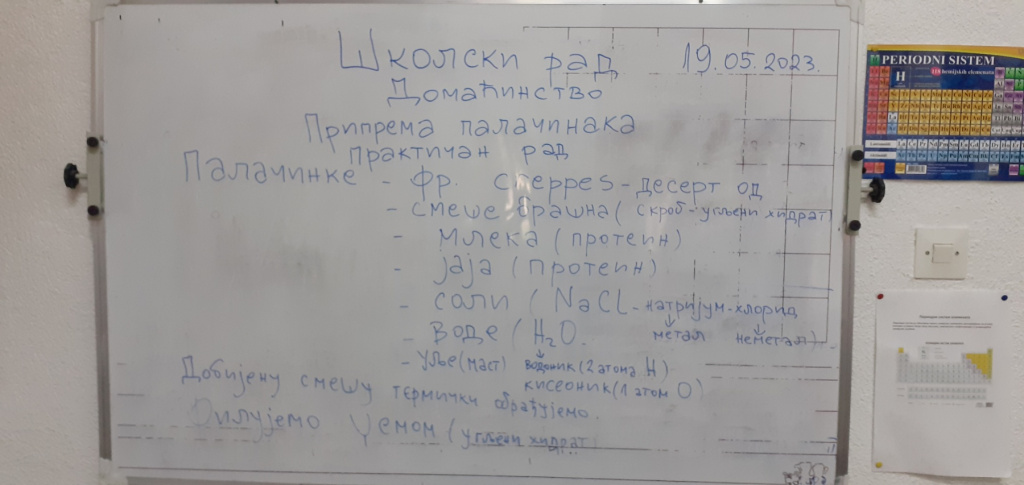 Школски рад 19.05.2023.
Домаћинство
Припрема палачинака
практичан рад
Палачинке - фр. creppes - десерт од
- смеше брашна (скроб - угљени хидрат)
- млека (протеин)
- јаја (протеин)
- соли (NaCl - натријум-хлорид
метал неметал)
- воде (H₂O.
водоник (2 атома H)
кисеоник (1 атом O)
- уље (маст)
Добијену смешу термички обрађујемо.
Филујемо џемом (угљени хидрат)
PERIODNI SISTEM
118 hemijskih elemenata
H